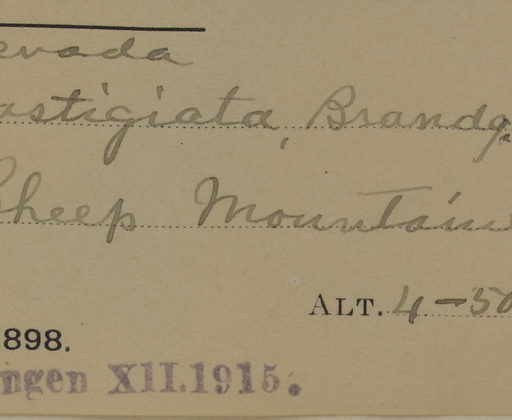 evada
astigiata, Brandg.
Sheep Mountain
ALT. 4-50
898.
ngen XII.1915.